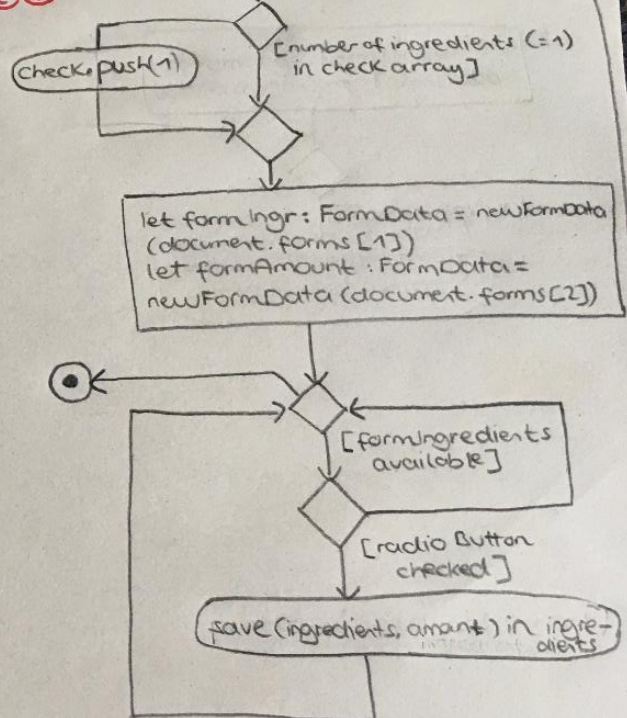 check.push(1)
[number of ingredients (=1)
in check array]
let formIngr: FormData = newFormData
(document.forms [1])
let formAmount : FormData =
newFormData (document.forms[2])
[formIngredients
available]
[radio Button
checked]
save (ingredients, amant) in ingre-
dients